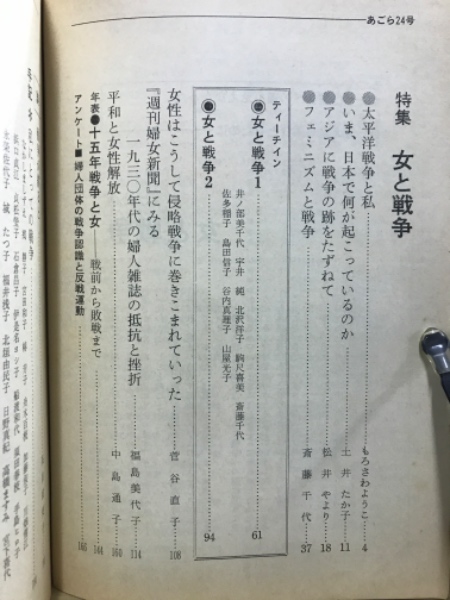 あごら24号
特集 女と戦争
●太平洋戦争と私 もろさわようこ 4
●いま、日本で何が起こっているのか 土井たか子 11
●アジアに戦争の跡をたずねて 松井やより 18
●フェミニズムと戦争 斎藤千代 37
ティーチイン
●女と戦争1 61
井ノ部美千代 宇井純 北沢洋子 駒尺喜美 斎藤千代
佐多稲子 島田信子 谷内真理子 山屋光子
●女と戦争2 94
女性はこうして侵略戦争に巻きこまれていった 菅谷直子 108
『週刊婦女新聞』にみる
一九三〇年代の婦人雑誌の抵抗と挫折 福島美代子 114
平和と女性解放 中島通子 160
年表●十五年戦争と女――戦前から敗戦まで 144
アンケート■婦人団体の戦争認識と反戦運動 166
城たつ子 福井浅子 北垣由民子 日野真紀 高橋ますみ